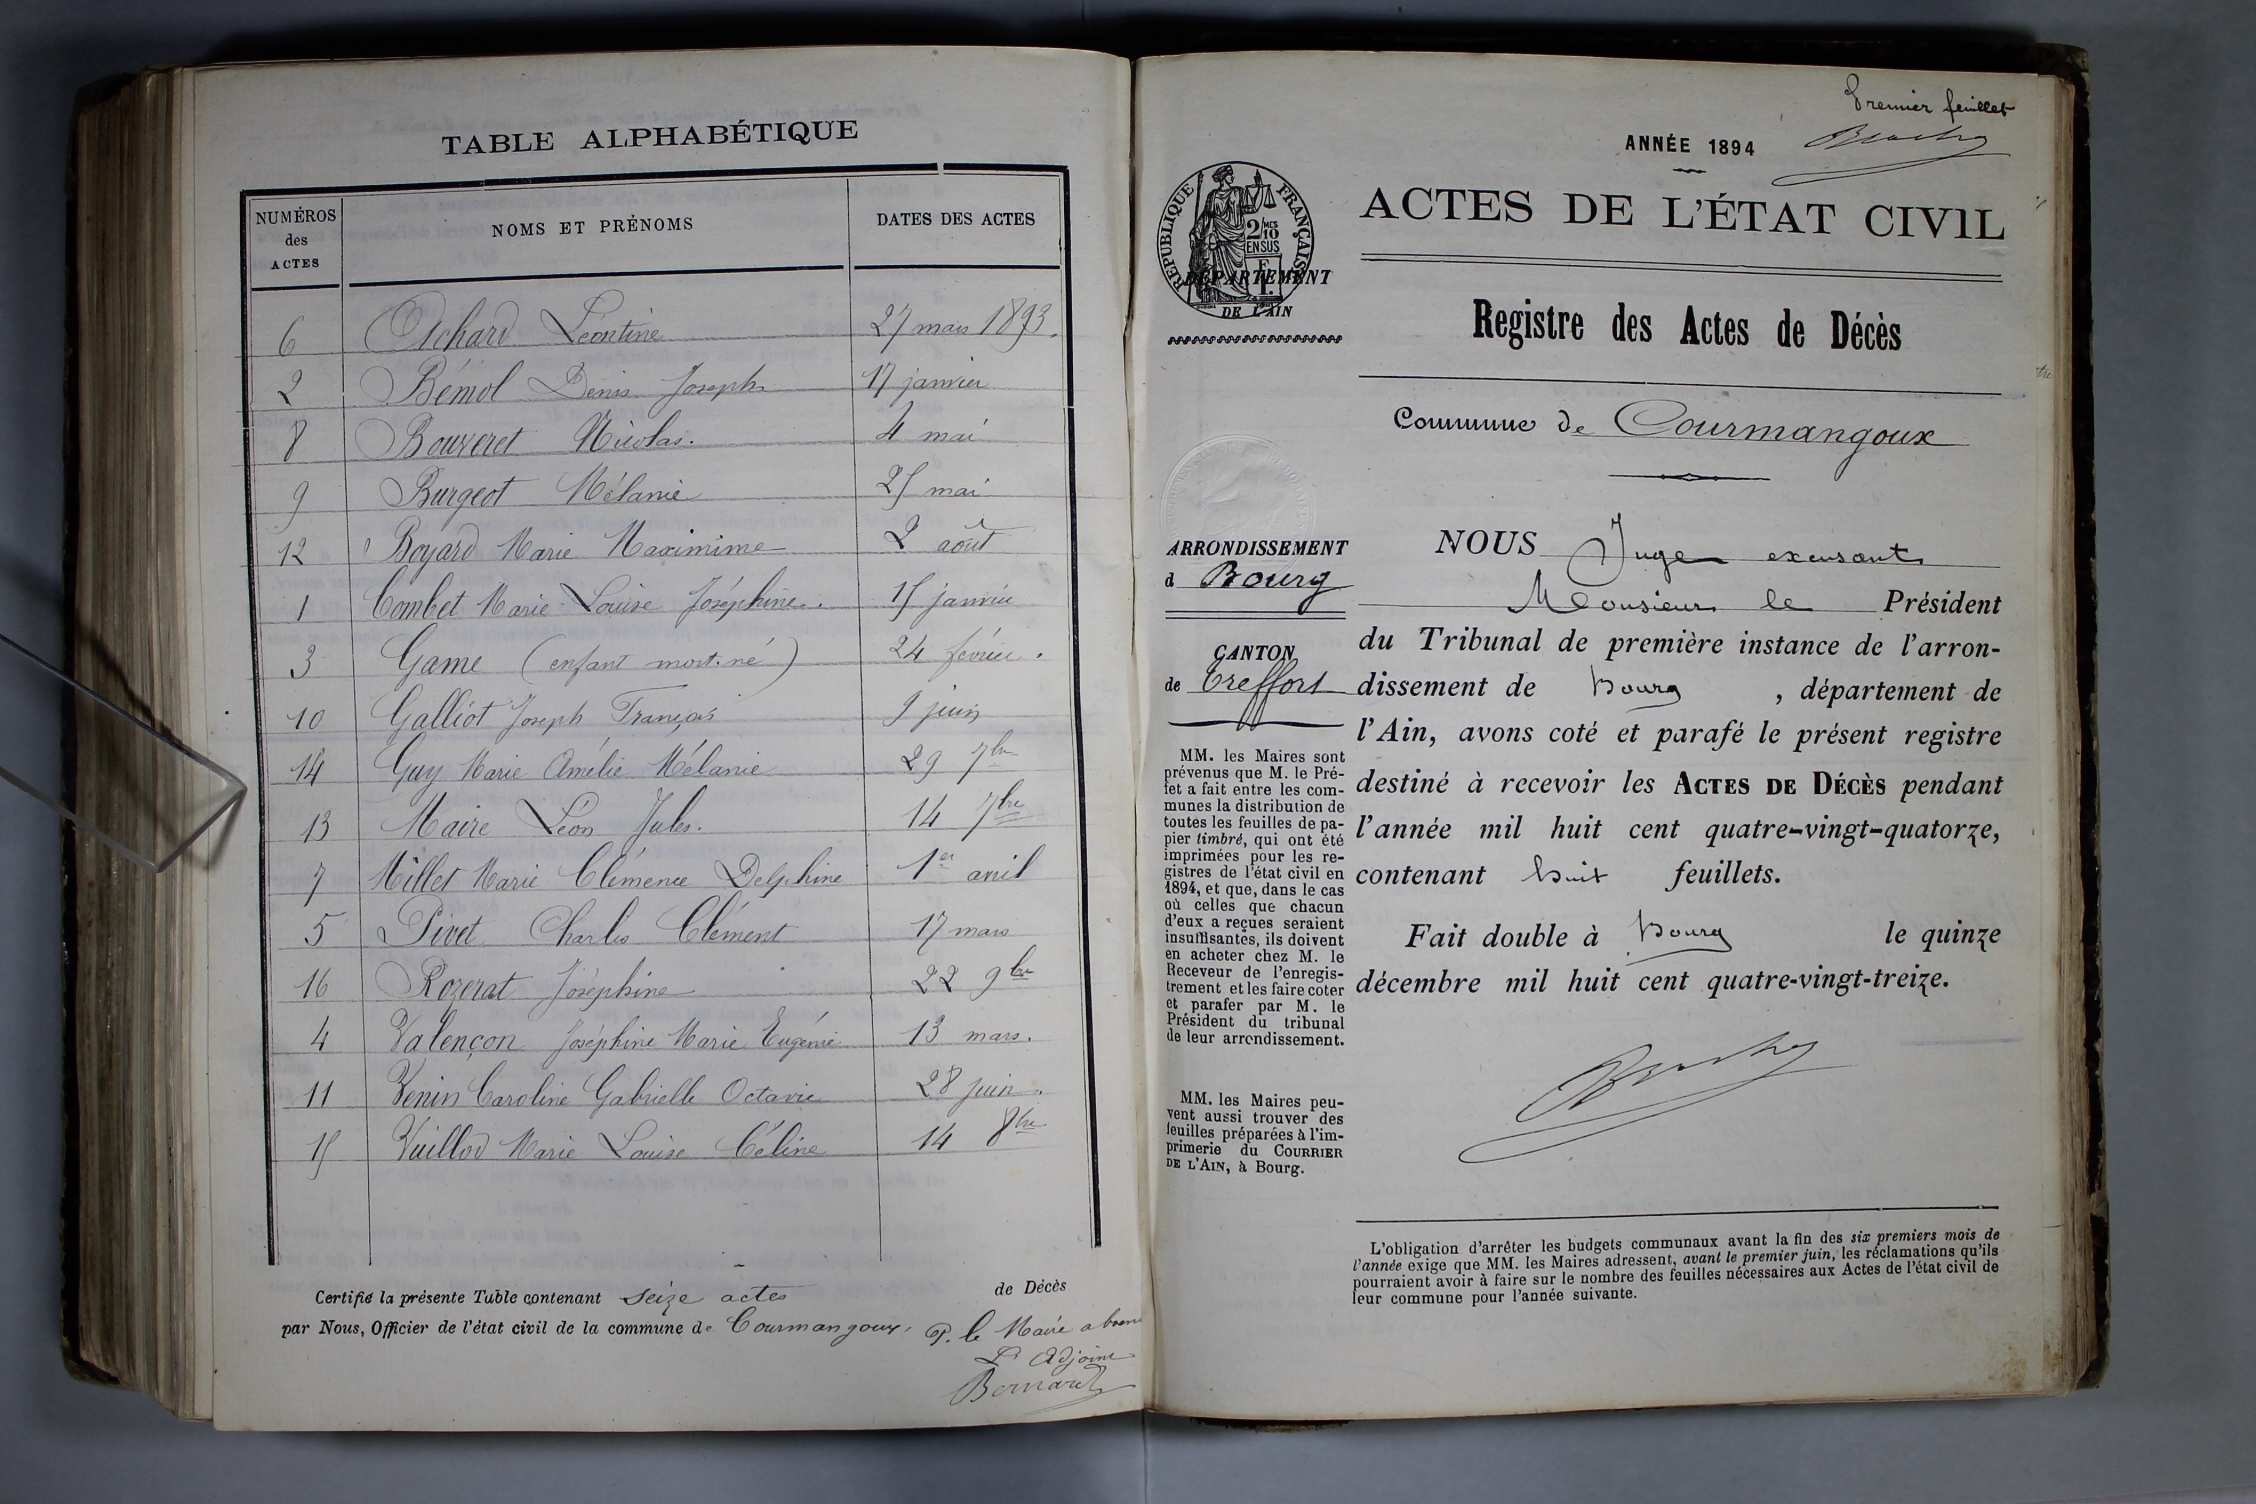 TABLE ALPHABÉTIQUE
NUMÉROS des ACTES NOMS ET PRÉNOMS DATES DES ACTES
6 Léontine 27 mars 1893.
2 Bémol Denis Joseph 17 janvier
8 Bouveret Nicolas. 4 mai
9 Burgeot Mélanie 25 mai
12 Boyard Marie Maximime 2 août
1 Combet Marie Louise Joséphine. 15 janvier
3 Game (enfant mort-né) 24 février.
10 Galliot Joseph François 9 juin
14 Guy Marie Amélie Mélanie 29 7bre
13 Maire Léon Jules. 14 7bre
7 Millet Marie Clémence Delphine 1er avril
5 Pivet Charles Clément 17 mars
16 Rozerat Joséphine 22 9bre
4 Valençon Joséphine Marie Eugénie 13 mars.
11 Venin Caroline Gabrielle Octavie 28 juin.
15 Vuillod Marie Louise Céline 14 8bre
Certifié la présente Table contenant seize actes de Décès
par Nous, Officier de l'état civil de la commune de Courmangoux.
P. le Maire
L'Adjoint
Bernard
Premier feuillet
ANNÉE 1894
ACTES DE L'ÉTAT CIVIL
RÉPUBLIQUE FRANÇAISE
2/10 MES
EN SUS
DÉPARTEMENT
DE L'AIN
Registre des Actes de Décès
Commune de Courmangoux
ARRONDISSEMENT
d Bourg
CANTON
de Treffort
MM. les Maires sont
prévenus que M. le Pré-
fet a fait entre les com-
munes la distribution de
toutes les feuilles de pa-
pier timbré, qui ont été
imprimées pour les re-
gistres de l'état civil en
1894, et que, dans le cas
où celles que chacun
d'eux a reçues seraient
insuffisantes, ils doivent
en acheter chez M. le
Receveur de l'enregis-
trement et les faire coter
et parafer par M. le
Président du tribunal
de leur arrondissement.
MM. les Maires peu-
vent aussi trouver des
feuilles préparées à l'im-
primerie du COURRIER
DE L'AIN, à Bourg.
NOUS Juge excusant
Monsieur le Président
du Tribunal de première instance de l'arron-
dissement de Bourg, département de
l'Ain, avons coté et parafé le présent registre
destiné à recevoir les ACTES DE DÉCÈS pendant
l'année mil huit cent quatre-vingt-quatorze,
contenant huit feuillets.
Fait double à Bourg le quinze
décembre mil huit cent quatre-vingt-treize.
L'obligation d'arrêter les budgets communaux avant la fin des six premiers mois de
l'année exige que MM. les Maires adressent, avant le premier juin, les réclamations qu'ils
pourraient avoir à faire sur le nombre des feuilles nécessaires aux Actes de l'état civil de
leur commune pour l'année suivante.